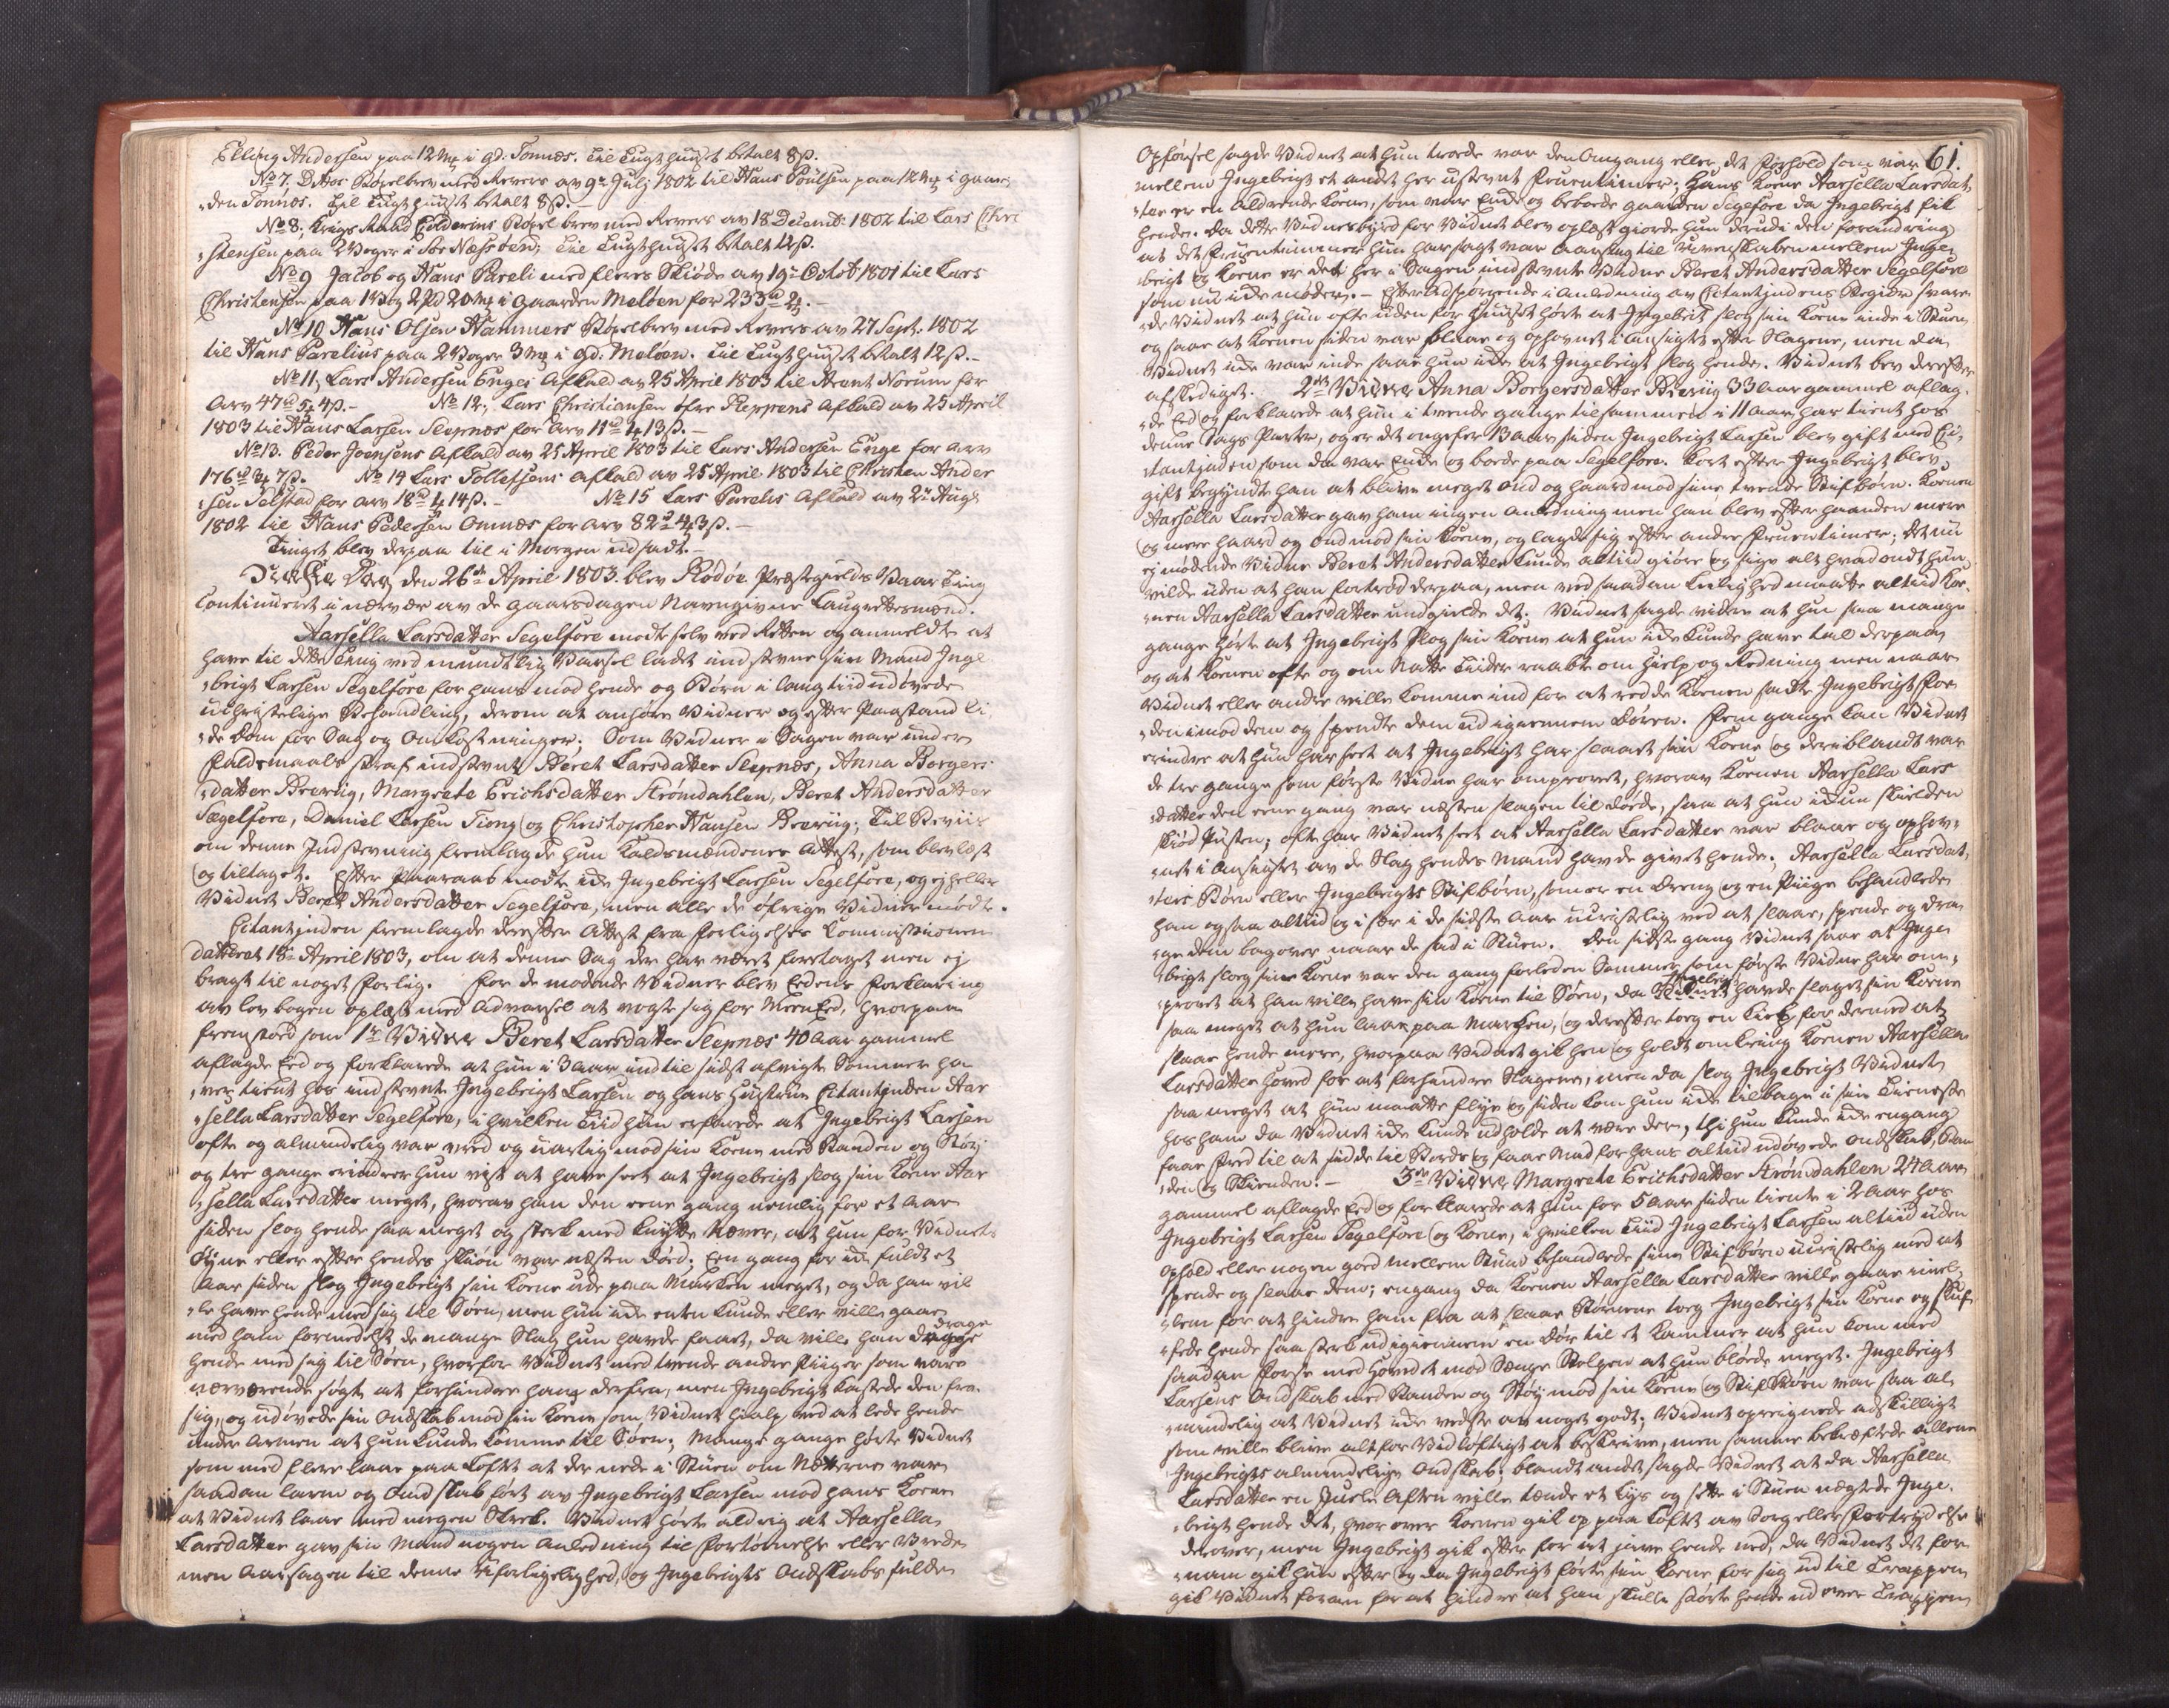 Elling Andersen paa 12 mk i gd. Tonnes. Til Tugthuuset betalt 8 ß.
No 7. Ditos Bøxelbrev med Revers av 9de Julj 1802 til Hans Poulsen paa 12 mk i gaar-
den Tonnes. Til Tugthuuset betalt 8 ß.
No 8, Krigs Raad Colderins Bøxelbrev med Revers av 18 Decemb: 1802 til Lars Chri
stensen paa 2 Woger i Nessøen; Til Tugthuuset betalt 12 ß.
No 9 Jacob og Hans Pareli med fleres Skiøde av 19de Octob 1801 til Lars
Christensen paa 1 Wog 2 Pd 20 mk i Gaarden Meløen for 233 rd 2 mk. -
No 10 Hans Olsen Hammers Bøxelbrev med Revers av 27 Sept. 1802
til Hans Parelius paa 2 Woger 3 mk i gd. Meløen. Til Tugthuuset betalt 12 ß. -
No 11, Lars Andersen Enges Afkald av 25 April 1803 til Arent Norum for
Arv 47 rd 5 mk 4 ß. - No 12, Lars Christiansen Reppens Afkald av 25 April
1803 til Hans Larsen Slepnes for Arv 11 rd 4 mk 13 ß. -
No 13. Peder Joensens Afkald av 25 April 1803 til Lars Andersen Enge for Arv
176 rd 2 mk 7 ß. No 14 Lars Tollefsens Afkald av 25 April 1803 til Christen Ander
sen Selstad for Arv 18 rd 4 mk 14 ß. - No 15 Lars Parelis Afkald av 2de Aug:
1802 til Hans Pedersen Onnæs for Arv 82 rd 4 mk 3 ß. -
Tinget blev derpaa til i Morgen udsadt. -
Dag den 26de April 1803. blev Rødøe Præstegields Vaar Ting
Continueret i nærvær av de gaarsdagen Navngivne Laugrettesmænd.
Aarsella Larsdatter Segelfore mødte selv ved Retten og anmeldte at
have til dette Ting ved mundtlig Varsel ladet indstevne sin Mand Inge
brigt Larsen Segelfore for hans mod hende og Børn i lang tiid udøvede
uchristelige Behandling, derom at anhøre Vidner og efter Paastand li
de Dom for Sag og Omkostninger; Som Vidner i Sagen var under
Faldsmaals straf indstevnt Beret Larsdatter Slepnes, Anna Borgers
datter Breviig, Margrete Erichsdatter Strømdahlen, Beret Andersdatter
Segelfore, Daniel Larsen Tiong og Christopher Hansen Breviig; Til Beviis
om denne Indstevning fremlagde hun Kaldsmændenes Attest, som blev læst
og tiltaget. Efter Paaraab mødte ikke Ingebrigt Larsen Segelfore, og ej heller
Vidnet Beret Andersdatter Segelfore, men alle de øfrige Vidner mødte.
Citantinden fremlagde derefter Attest fra Forligelses Commissionen
datteret 18de April 1803, om at denne Sag der har været foretaget men ej
bragt til noget Forlig. For de mødende Vidner blev Eedens Forklaring
av lovbogen oplæst med Advarsel at vogte sig for MeenEed, hvorpaa
fremstoed som 1te Vidne Beret Larsdatter Slepnes 40 Aar gammel
aflagde Eed og forklarede at hun i 3 Aar indtil sidst afvigte Sommer ha
ver tient hos indstevnte Ingebrigt Larsen og hans Hustrue Citantinden Aar
sella Larsdatter Segelfore, i hvilken Tiid hun erfarede at Ingebrigt Larsen
ofte og almindelig var vred og uartig mod sin Kone med Banden og Støy
og tre gange erindrer hun vist at have seet at Ingebrigt slog sin Kone Aar
sella Larsdatter meget, hvorav han den eene gang nemlig for et Aar
siden slog hende saa meget og sterk med knytte Næver, at hun for Vidnets
Øyne eller efter hendes skiøn var næsten død; Een gang for ikke fuldt et
Aar siden slog Ingebrigt sin Kone ude paa Marken meget, og da han vil
le have hende med sig til Søen, men hun ikke enten kunde eller ville gaae
med ham formedelst de mange Slag hun havde faaet, da ville han drage
hende med sig til Søen, hvorfor Vidnet med tvende andre Piiger som vare
nærværende søgte at forhindre ham derfra, men Ingebrigt kastede dem fra
sig, og udøvede sin Ondskab mod sin Kone som Vidnet hialp ved at lede hende
under Armen at hun kunde komme til Søen; Mange gange hørte Vidnet
som med flere laae paa Loftet at der nede i Stuen om Nætterne var
saadan larm og Ondskab ført av Ingebrigt Larsen mod hans Kone
at Vidnet laae med megen Skrek. Vidnet hørte aldrig at Aarsella
Larsdatter gav sin Mand nogen Anledning til Fortørnelse eller Vrede
men Aarsagen til denne Uforligelighed, og Ingebrigts Ondskabs fulde
61.
Opførsel sagde Vidnet at hun troede var den Omgang eller det Forhold som var
mellem Ingebrigt et andet her ustevnt Fruentimer; Hans Kone Aarsella Larsdat
ter er en Aldrende Kone, som var Enke og beboede gaarden Segelfore da Ingebrigt fik
hende. Da dette Vidnesbyrd for Vidnet blev oplæst giorde hun derudi den forandring
at det Fruentimmer hun har sagt var Aarsag til Uvenskaben mellem Inge
brigt og Kone er det her i Sagen indstevnte Vidne Beret Andersdatter Segelfore
som nu ikke møder. - Efter Adspørgende i Anledning av Citantindens Begier svare
de Vidnet at hun ofte uden for Huuset hørte at Ingebrit slog sin Kone inde i Stuen
og saae at Konen siden var blaae og ophovnet i Ansigtet efter Slagene, men da
Vidnet ikke var inde saae hun ikke at Ingebrigt slog hende. Vidnet blev derefter
afskediget. 2det Vidne Anna Borgersdatter Breviig 33 Aar gammel aflag-
de Eed og forklarede at hun i tvende gange tilsammen i 11 Aar har tient hos
denne Sags Parter, og er det ongefer 13 Aar siden Ingebrigt Larsen blev gift med Ci
tantinden som da var Enke og boede paa Segelfore. Kort efter Ingebrigt blev
gift begyndte han at blive meget ond og haard mod sine tvende Stifbørn. Konen
Aarsella Larsdatter gav ham ingen Anledning men han blev efter haanden mere
og mere haard og ond mod sin Kone, og lagde sig efter andre Fruentimer; det nu
ej mødende Vidne Beret Andersdatter kunde altiid giøre og sige alt hvad ondt hun
vilde uden at han fortrød derpaa, men ved saadan Leilighed maatte altiid Ko
nen Aarsella Larsdatter undgielde det. Vidnet sagde viden at hun saa mange
gange hørte at Ingebrigt slog sin Kone at hun ikke kunde have tal derpaa,
og at Konen ofte og om Natte Tiider raabte om Hielp og Redning men naar
Vidnet eller andre ville komme ind for at redde Konen satte Ingebrigt Fo
den imod dem og spendte dem ud igiennem Døren. Fem gange kan Vidnet
erindre at hun har seet at Ingebrigt har slaaet sin Kone og deriblandt var
de tre gange som første Vidne har omprovet, hvorav Konen Aarsella Lars
datter den eene gang var næsten slagen til døde, saa at hun ikkun skielden
skiød Pusten; ofte har Vidnet seet at Aarsella Larsdatter var blaae og ophov
net i Ansigtet av de Slag hendes Mand havde givet hende; Aarsella Larsdat
ters Børn eller Ingebrigts Stifbørn, som er en Dreng og en Piige behandlede
han ogsaa altiid og i sær i de sidste Aar ucristelig ved at slaae, spende og dra
ge dem bagover naar de sad i Stuen. Den sidste gang Vidnet saae at Inge
brigt slog sin Kone var den gang forleden Sommer som første Vidne har om
provet at han ville have sin Kone til Søen, da Ingebrigt havde slaget sin Kone
saa meget at hun laae paa Marken, og derefter tog en Kiep for dermed at
slaae hende mere, hvorpaa Vidnet gik hen og holdt omkring Konen Aarsella
Larsdatter Hoved for at forhindre Slagene, men da slog Ingebrigt Vidnet
saa meget at hun maatte flye og siden kom hun ikke tilbage i sin Tieneste
hos ham da Vidnet ikke kunde udholde at være der, thi hun kunde ikke engang
faae Fred til at sidde til Bords og faae Mad for hans altiid udøvede Ondskab, Ban
den og Skienden. - 3de Vidne Margrete Erichsdatter Strømdahlen 24 Aar
gammel aflagde Eed og forklarede at hun for 5 Aar siden tiente i 2 Aar hos
Ingebrigt Larsen Segelfore og Kone, i hvilken Tiid Ingebrigt Larsen altiid uden
Ophold eller nogen goed mellem Stund behandlede sine Stifbørn ucristelig med at
spende og slaae dem; engang da Konen Aarsella Larsdatter ville gaae imel
lem for at hindre ham fra at slaae Børnene tog Ingebrigt sin Kone og skuf
fede hende saa sterk ud igiennem en Dør til et Kammer at hun kom med
saadan Force med Hovedet mod Senge Stolpen at hun blødde meget. Ingebrigt
Larsens Ondskab med Banden og Støy mod sin Kone og Stifbørn var saa al
mindelig at Vidnet ikke vedste av noget godt; Vidnet opreignede adskilligt
som ville blive alt for Vidløftigt at beskrive, men samme bekræftede allene
Ingebrigts almindelige Ondskab: blandt andet sagde Vidnet at da Aarsella
Larsdatter en Juule Aften ville tænde et Lys og sette i Stuen nægtede Inge
brigt hende det, hvorover Konen gik op paa Loftet av Sorg eller Fortrydelse
derover, men Ingebrigt gik efter for at jave hende ned, da Vidnet det for
nam gik hun efter og da Ingebrigt førte sin Kone for sig ud til Trappen
gik Vidnet foran for at hindre at han skulle støde hende ud over Trappen